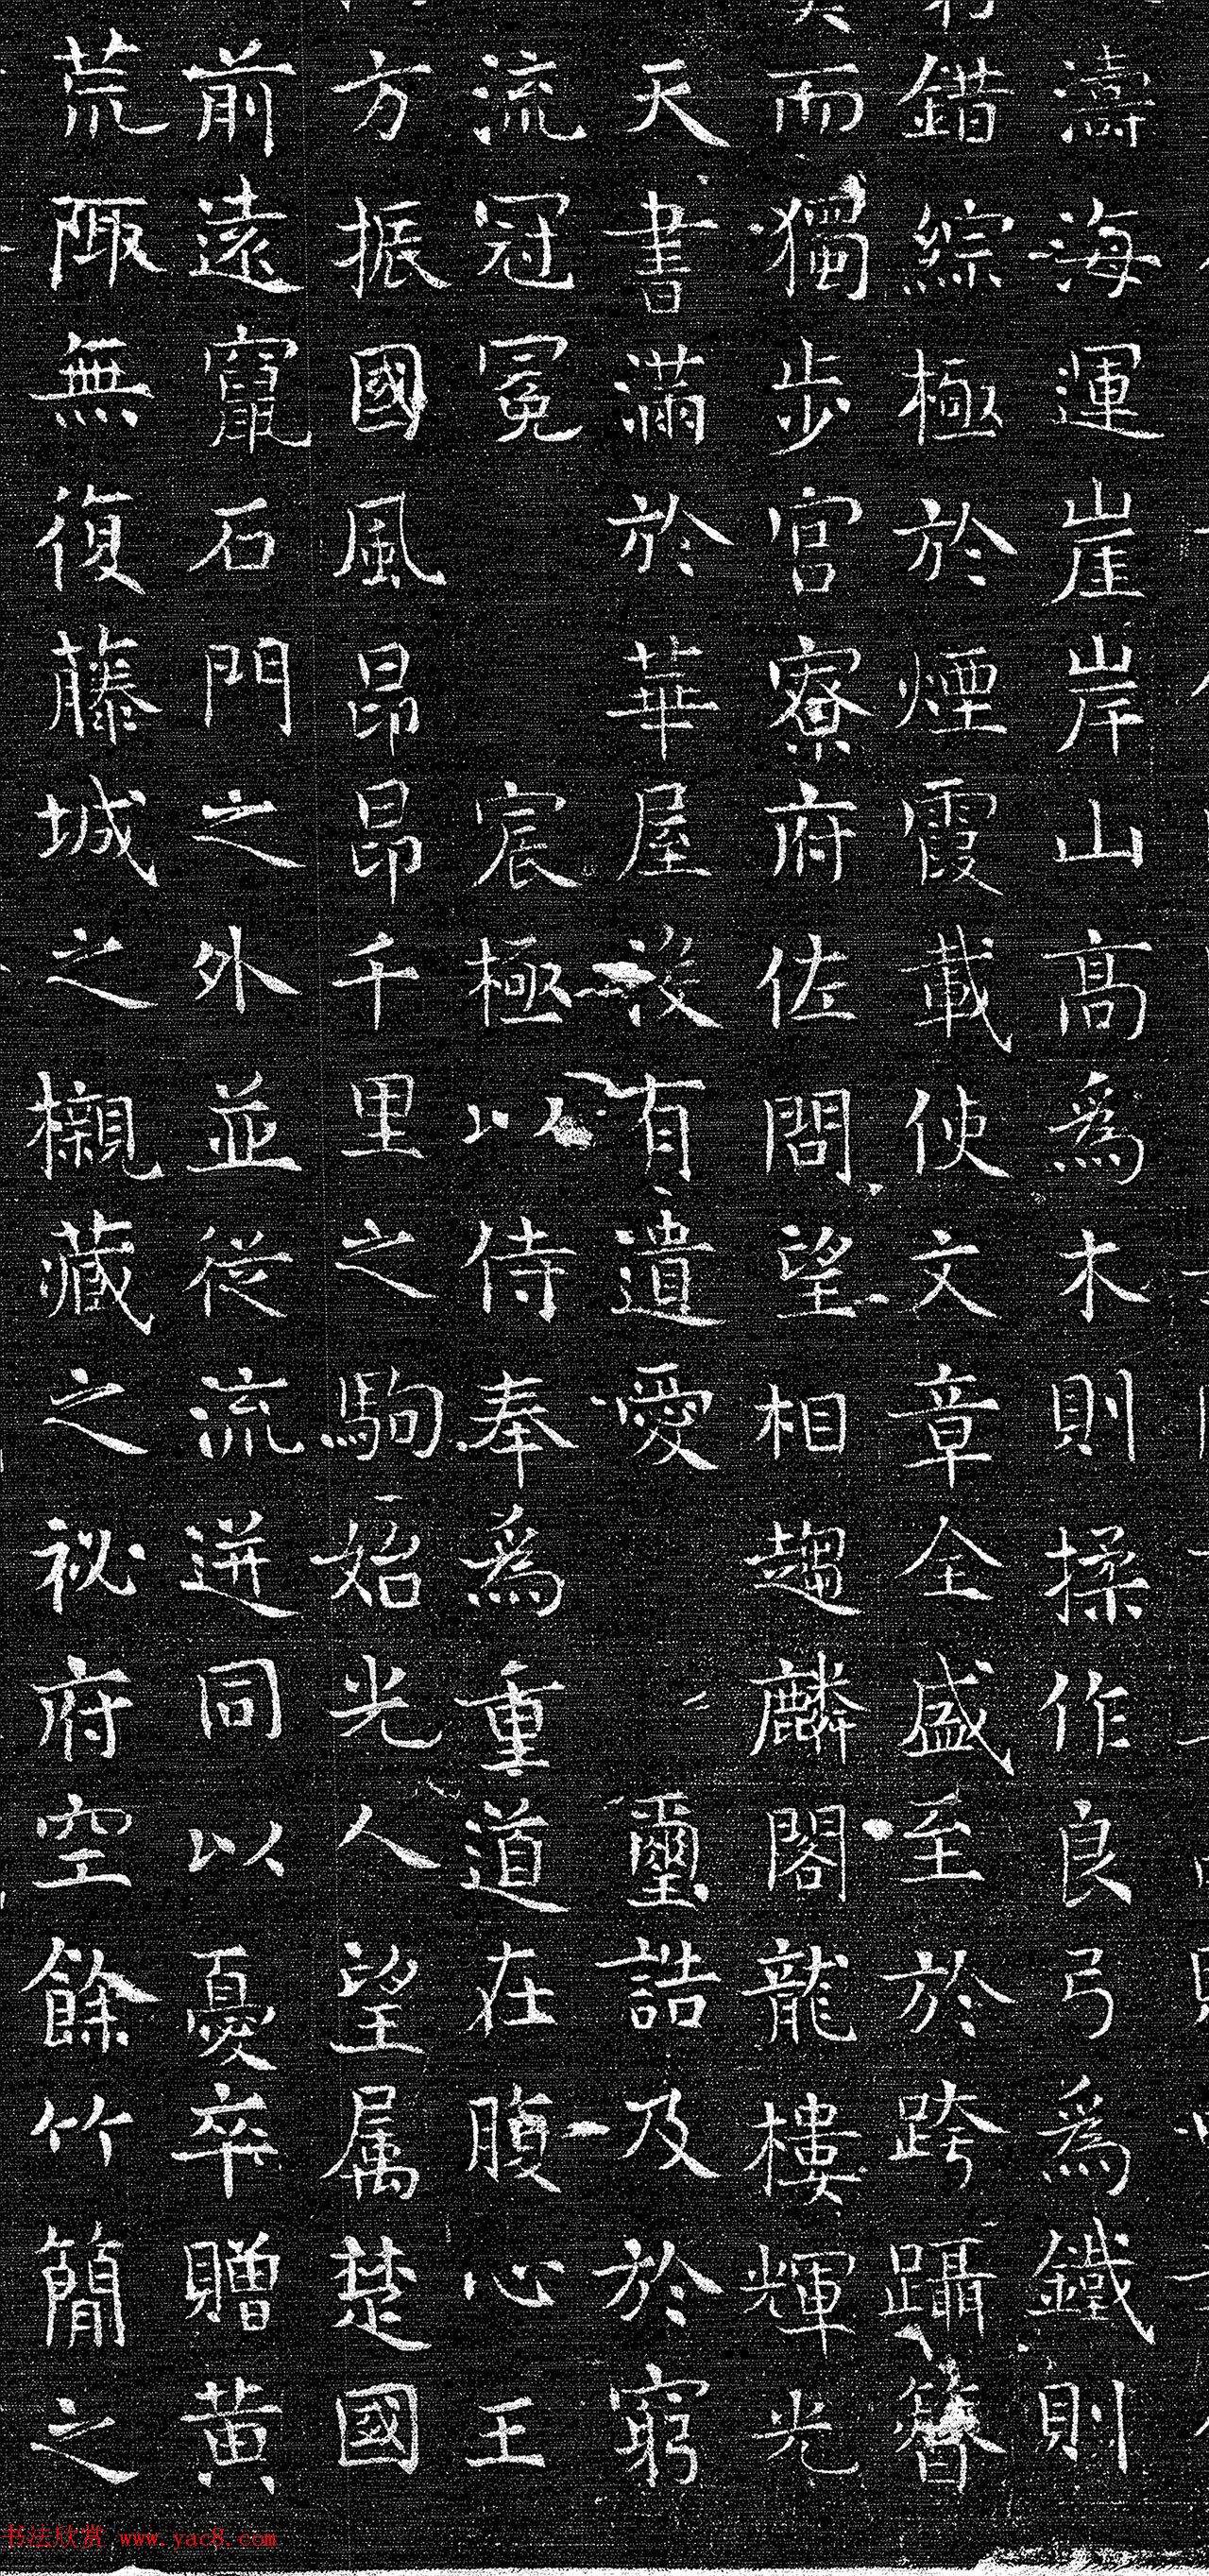 濤海運崖岸山高為木則揉作良弓為鐵則
錯綜極於煙霞載使文章全盛至於跨躡簪
而獨步官寮府佐問望相趨麟閣龍樓輝光
天書滿於華屋後有遺愛 璽誥及於窮
流冠冕 宸極以侍奉為重道在腹心王
方振國風昂昂千里之駒始光人望属楚國
前遠竄石門之外並從流迸同以憂卒贈黄
荒陬無復藤城之櫬藏之祕府空餘竹簡之
书法欣赏 www.yac8.com